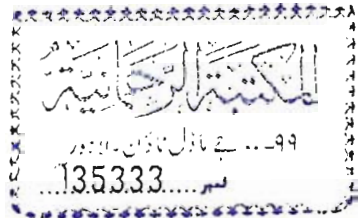 المکتبۃ الرحمانیۃ
۹۹ ... جے ماڈل ٹاؤن - لاہور
نمبر .... 135333 ....